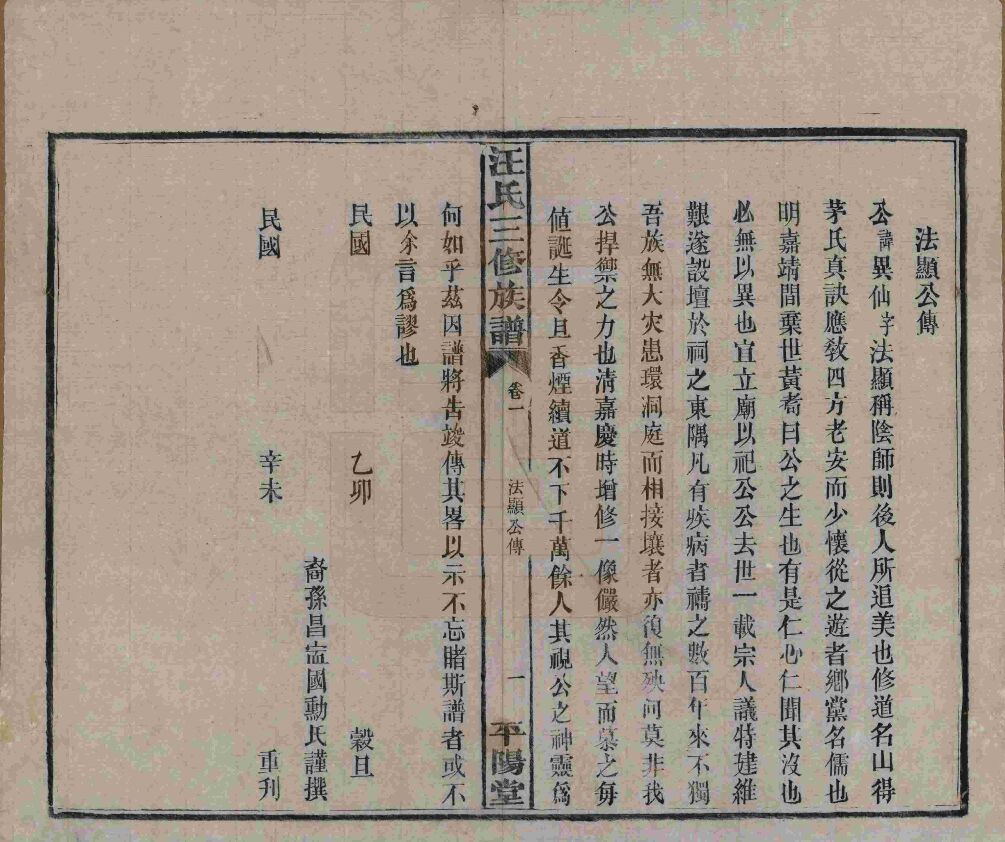 法顯公傳
公諱異仙字法顯稱陰師則後人所追美也修道名山得
茅氏真訣應教四方老安而少懷從之遊者鄉黨名儒也
明嘉靖間棄世黃耈曰公之生也有是仁心仁聞其沒也
必無以異也宜立廟以祀公公去世一載宗人議特建維
艱遂設壇於祠之東隅凡有疾病者禱之數百年來不獨
吾族無大灾患環洞庭而相接壤者亦復無殃何莫非我
公捍禦之力也淸嘉慶時增修一像儼然人望而慕之每
値誕生令旦香煙續道不下千萬餘人其視公之神靈爲
汪氏三修族譜
卷一
法顯公傳
一
平陽堂
何如乎茲因譜將告竣傳其畧以示不忘睹斯譜者或不
以余言爲謬也
民國 乙卯 穀旦
裔孫昌宣國勳氏謹撰
民國 辛未 重刋